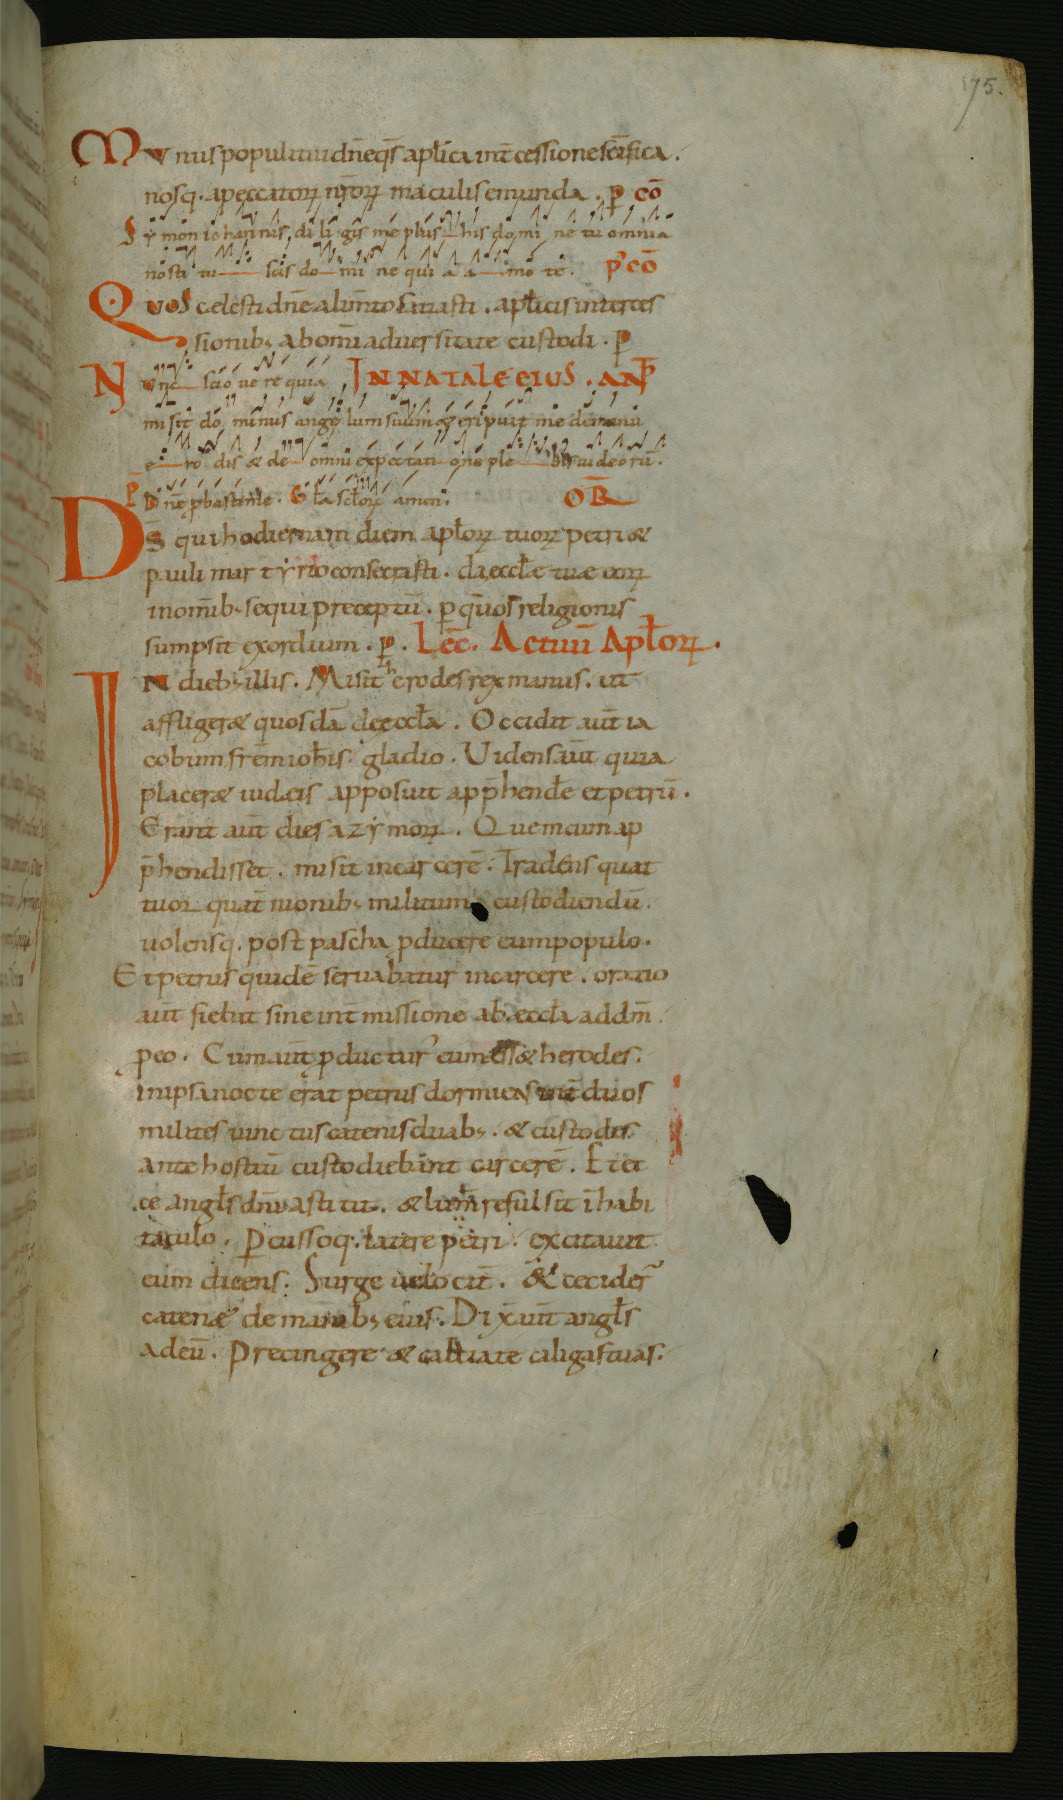 175.
Munus populi tui dn̄e q̄s apl̄ica int̄cessione sc̄ifica.
nosq. a peccatoꝝ nr̄oꝝ maculis emunda. ꝑ cō
Symon iohannis diligis me plus his domine tu omnia
nosti tu scis domine quia amo te. p̄ cō
Quos cælesti dn̄e alim̄to satiasti. apl̄icis interces
sionib; ab om̄i aduersitate custodi. ꝑ
Nunc scio uere quia IN NATALE EIUS. ANP̄
misit dominus angelum suum & eripuit me de manu
erodis & de omni expectatione plebis iudeorū.
P̄ Dn̄e ꝓbasti me. Gl̄a sc̄loꝝ amen. OR̄
D̄s qui hodiernam diem apl̄oꝝ tuoꝝ petri &
pauli martyrio consecrasti. da eccl̄æ tuæ eoꝝ
in om̄ib; sequi preceptū. ꝑ quos religionis
sumpsit exordium. ꝑ. Lēc. Actuū Apl̄oꝝ.
In dieb; illis. Misit herodes rex manus. ut
affligeræ quosdā de eccl̄a. Occidit aūt ia
cobum frēm ioh̄is gladio. Uidens aūt quia
placeræ iudæis apposuit app̄hendēr et petrū.
Erant aūt dies azymoꝝ. Quem cum ap
p̄hendisset. misit in carcerē. Tradens quat
tuor quat̄nionib; militum custodiendū.
uolensq. post pascha ꝓducere eum populo.
Et petrus quidē seruabatur in carcere. oratio
aūt fiebat sine int̄missione ab æccl̄a ad dm̄
ꝓ eo. Cum aūt ꝓducturꝰ eum ess& herodes.
in ipsa nocte erat petrus dormiens int̄ duos
milites uinctus catenis duab;. & custodes
ante hostiū custodiebānt carcerē. Et ec
ce angl̄s dn̄i astitit. & lum̄ refulsit ī habi
taculo. Ꝑcussoq. latere petri. excitauit
eum dicens. Surge uelocit̄. & cecider̄
catenæ de manib; eius. Dix̄ aūt angl̄s
ad eū. Precingere & caltiate caligas tuas.